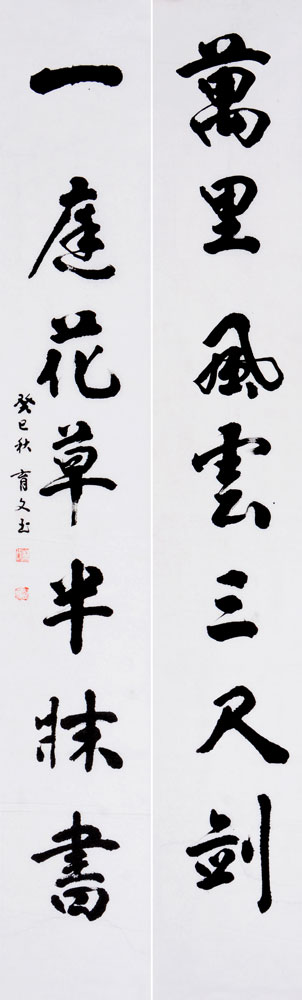 萬里風雲三尺劍
一庭花草半牀書
癸巳秋 育文書